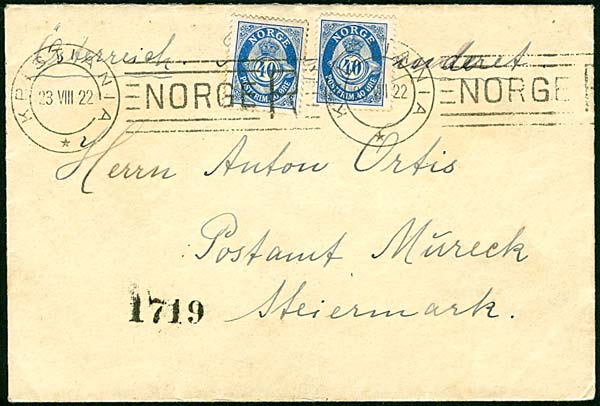 Österreich.
NORGE NORGE
40 40
POSTFRIM. 40 ØRE POSTFRIM. 40 ØRE
KRISTIANIA
23 VIII 22
NORGE
KRISTIANIA
VIII 22
NORGE
Herrn Anton Ortis
Postamt Mŭreck
Steiermark.
1719